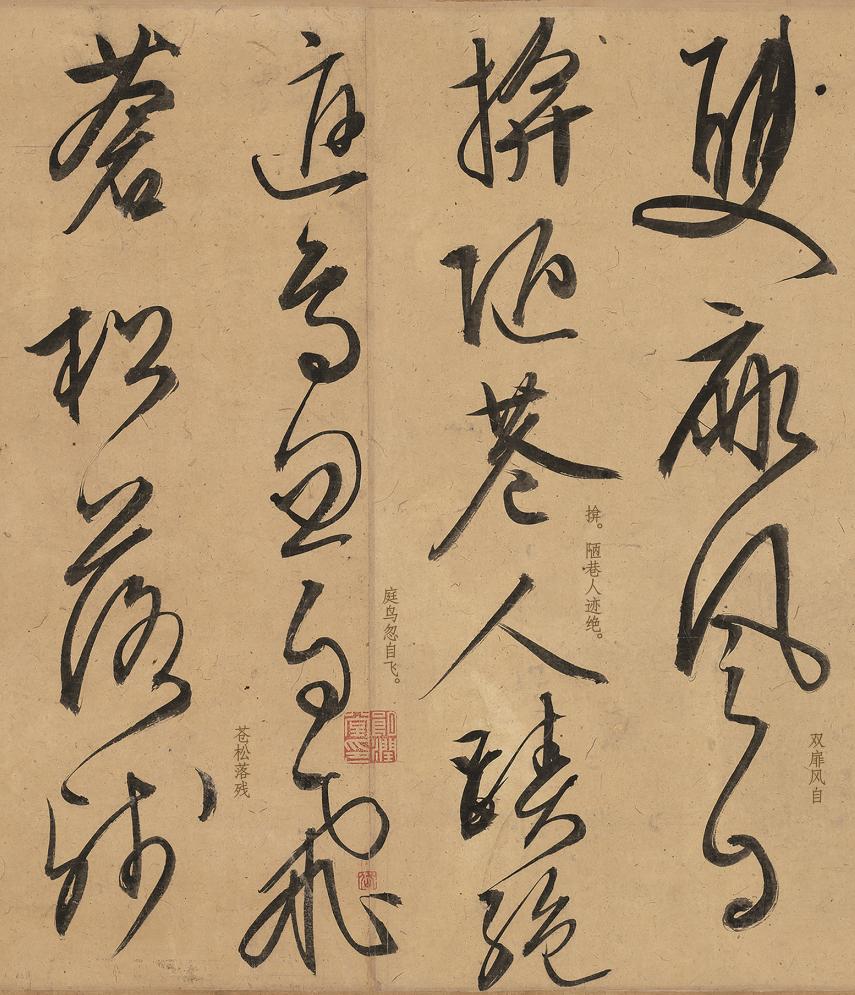 雙扉風自
双扉风自
揜陋巷人蹟絕
揜。陋巷人迹绝。
庭鳥忽自飛
庭鸟忽自飞。
蒼松落殘
苍松落残